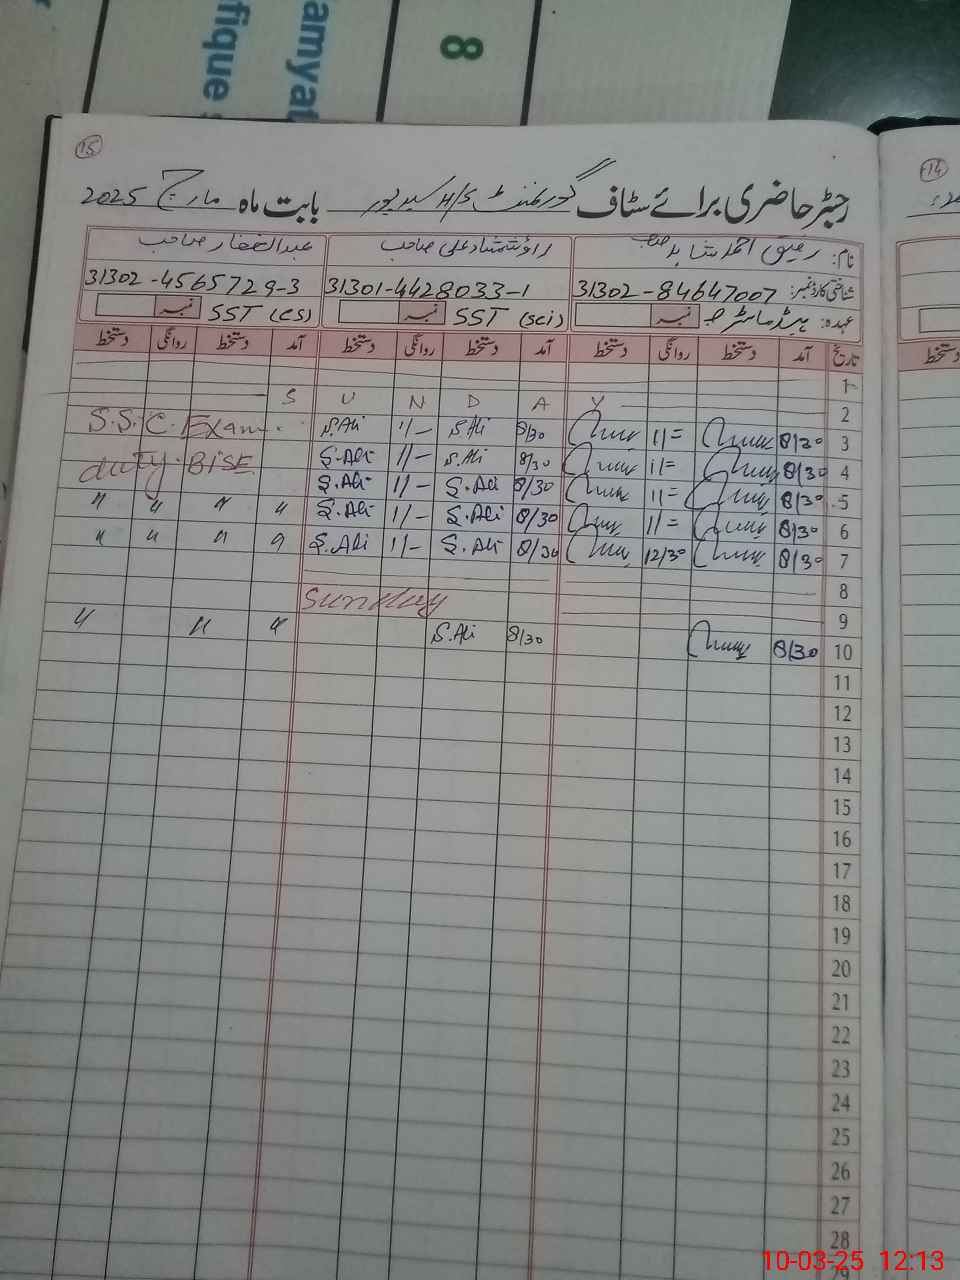 amyat
fique
8
15
14
رجسٹر حاضری برائے سٹاف گورنمنٹ بابت ماہ مارچ 2025
نام: رفیق احمد شاہد صاحب راؤ شمشاد علی صاحب عبدالغفار صاحب
شناختی کارڈ نمبر: 31302-84647007 31301-4428033-1 31302-4565729-3
عہدہ: ہیڈ ماسٹر نمبر SST (sci) نمبر SST (cs) نمبر
تاریخ آمد دستخط روانگی دستخط آمد دستخط روانگی دستخط آمد دستخط روانگی دستخط
دستخط
1
2 S U N D A Y
3 8/30 11= 8/30 S.Ali 11- S.Ali S.S.C. Exam.
4 8/30 11= 8/30 S.Ali 11- S.Ali duty. BISE
5 8/30 11= 8/30 S.Ali 11- S.Ali " " " "
6 8/30 11= 8/30 S.Ali 11- S.Ali " " " "
7 8/30 12/30 8/30 S.Ali 11- S.Ali
8
9 Sunday
10 8/30 8/30 S.Ali " " "
11
12
13
14
15
16
17
18
19
20
21
22
23
24
25
26
27
28
29
10-03-25 12:13